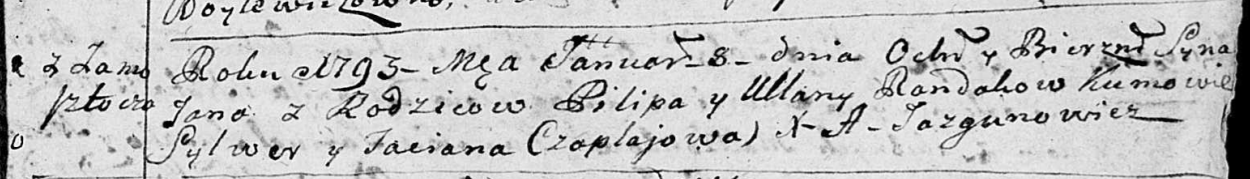 z Zamo
Roku 1793 – Męa Januar 8 – dnia Ochr y Bierzm Syna
Jana z Rodzicow Pilipa y Ullany Randakow Kumowie
Sylwer y Taciana Czaplajowa) X – A – Jazgunowicz